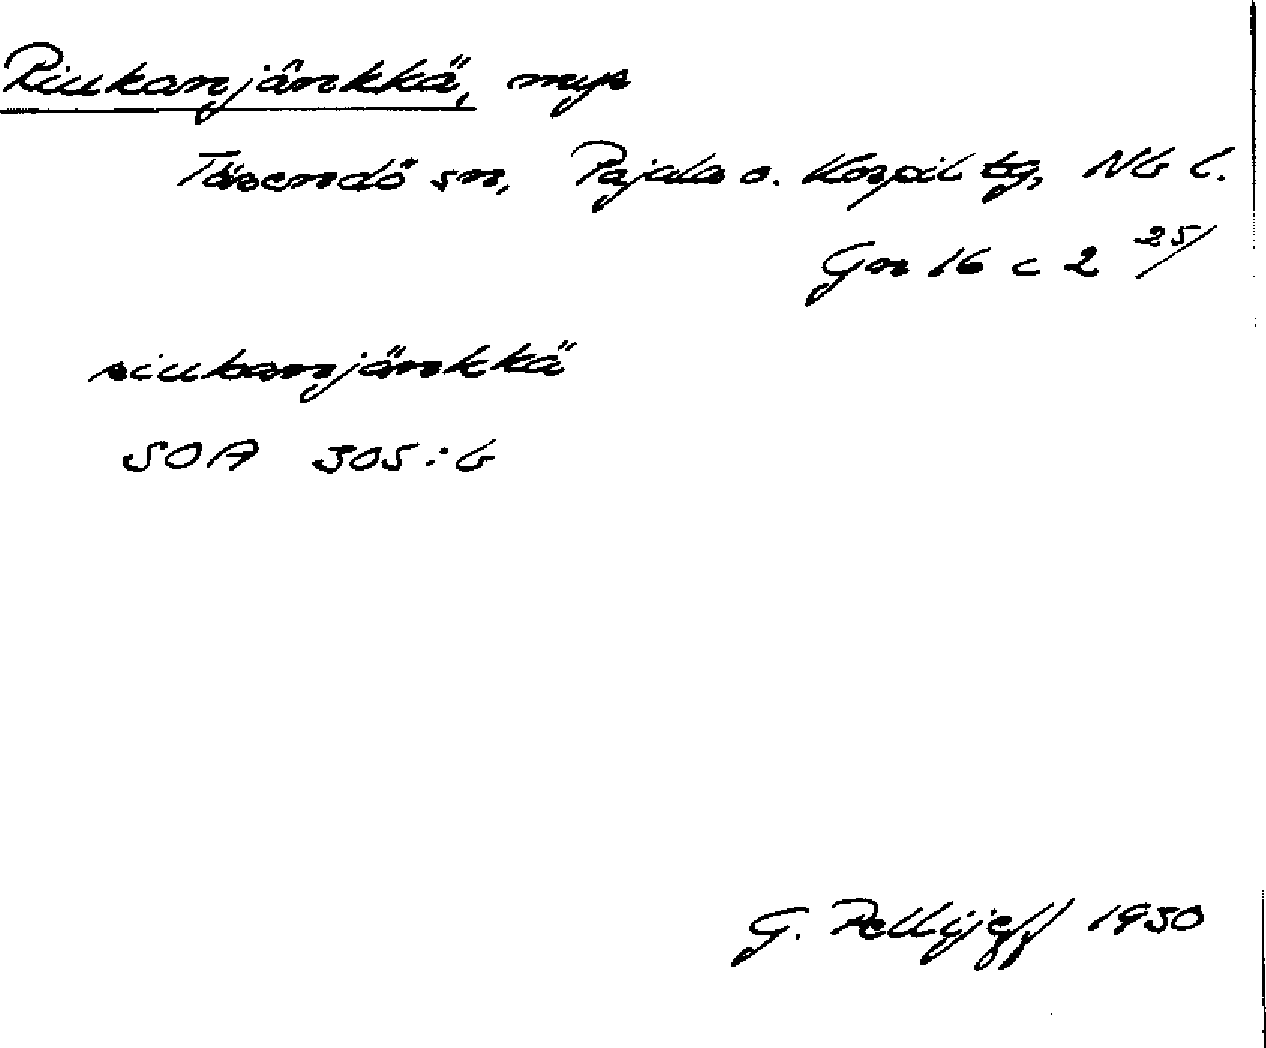 Riukanjänkkä, myr
Tärendö sn, Pajala o. Korpil tg, Nb l.
Gn 16 c 2 25/
riukanjänkkä
SOA 305:6
G. Pellijeff 1950